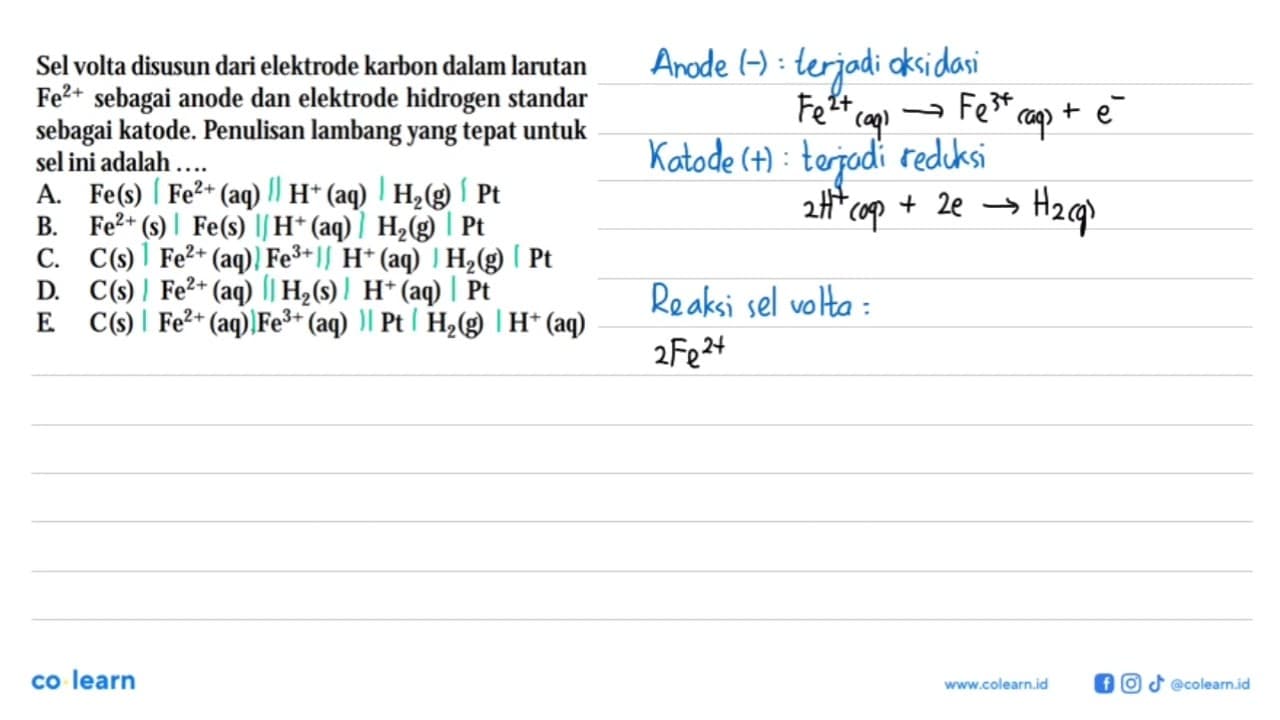 Sel volta disusun dari elektrode karbon dalam larutan
Fe²⁺ sebagai anode dan elektrode hidrogen standar
sebagai katode. Penulisan lambang yang tepat untuk
sel ini adalah ....
A. Fe(s) | Fe²⁺ (aq) || H⁺ (aq) | H₂(g) | Pt
B. Fe²⁺ (s) | Fe(s) || H⁺ (aq) | H₂(g) | Pt
C. C(s) | Fe²⁺ (aq)|Fe³⁺|| H⁺ (aq) | H₂(g) | Pt
D. C(s) | Fe²⁺ (aq) || H₂(s) | H⁺ (aq) | Pt
E. C(s) | Fe²⁺ (aq)|Fe³⁺ (aq) || Pt | H₂(g) | H⁺ (aq)
Anode (-) : terjadi oksidasi
Fe²⁺(aq) → Fe³⁺(aq) + e⁻
Katode (+) : terjadi reduksi
2H⁺(aq) + 2e → H₂(g)
Reaksi sel volta :
2Fe²⁺
co learn
www.colearn.id
@colearn.id